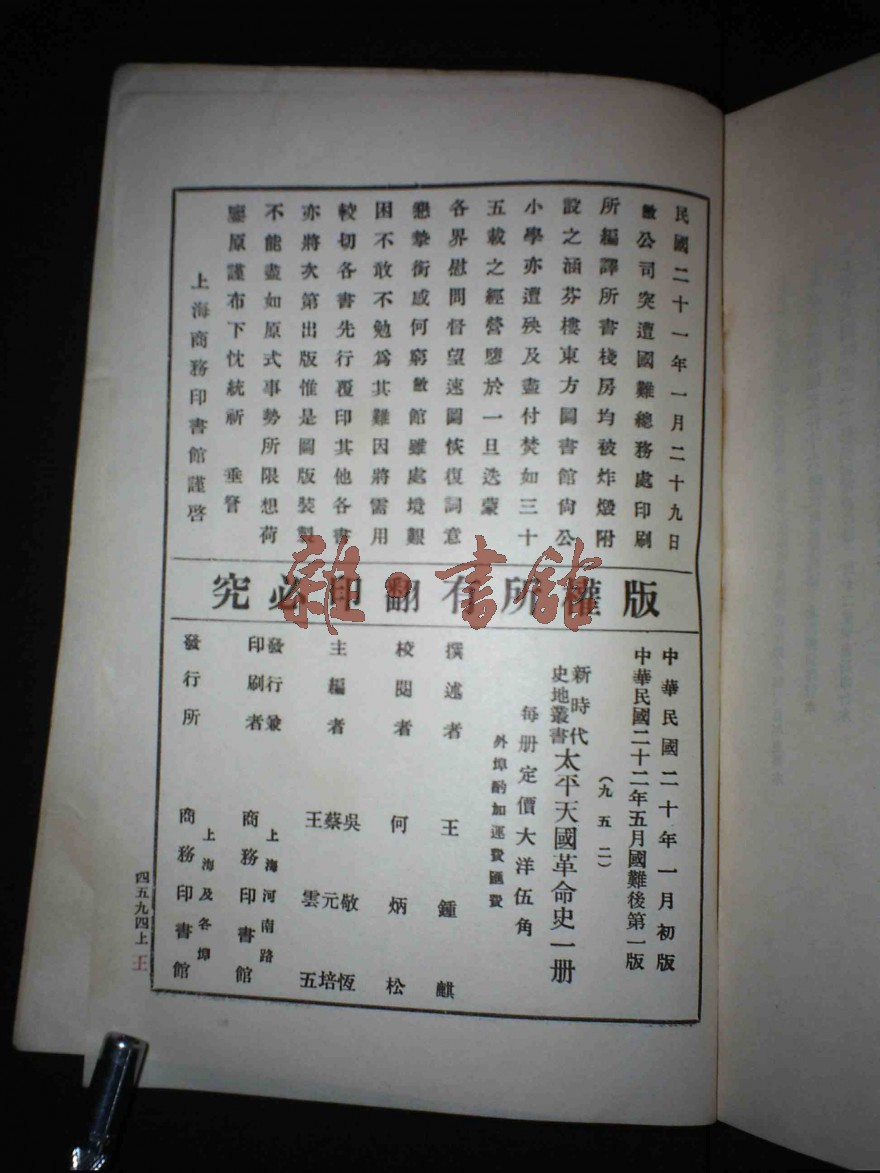 民國二十一年一月二十九日
敝公司突遭國難總務處印刷
所編譯所書棧房均被炸燬附
設之涵芬樓東方圖書館尙公
小學亦遭殃及盡付焚如三十
五載之經營墮於一旦迭蒙
各界慰問督望速圖恢復詞意
懇摯銜感何窮敝館雖處境艱
困不敢不勉爲其難因將需用
較切各書先行覆印其他各書
亦將次第出版惟是圖版裝製
不能盡如原式事勢所限想荷
鑒原謹布下忱統祈 垂詧
上海商務印書館謹啓
版權所有翻印必究
中華民國二十年一月初版
中華民國二十二年五月國難後第一版
(九五二)
新時代史地叢書 太平天國革命史一册
每册定價大洋伍角
外埠酌加運費匯費
撰述者 王鍾麒
校閱者 何炳松
主編者 吳敬恆 蔡元培 王雲五
發行兼印刷者 上海河南路 商務印書館
發行所 上海及各埠 商務印書館
四五九四上 王
雜·書館